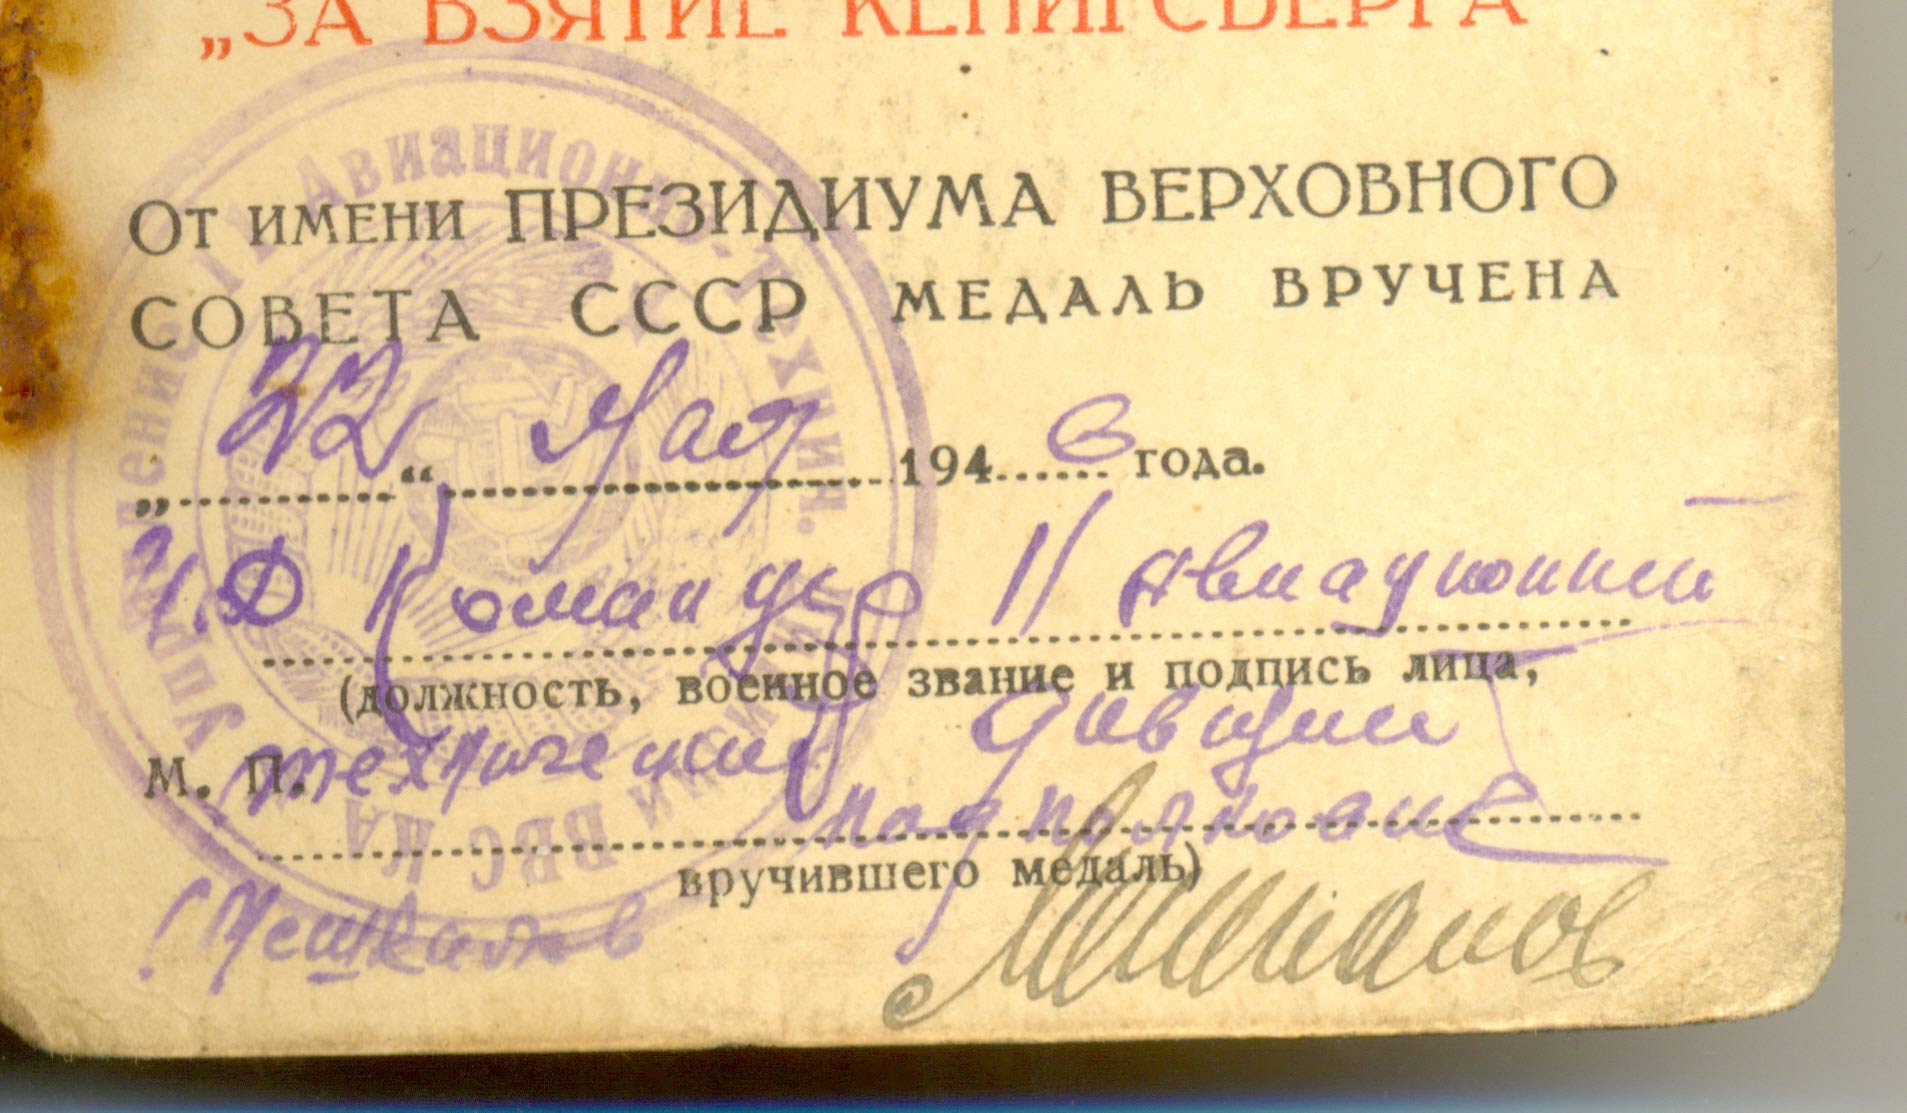 „ЗА ВЗЯТИЕ КЕНИГСБЕРГА
От имени ПРЕЗИДИУМА ВЕРХОВНОГО
СОВЕТА СССР МЕДАЛЬ ВРУЧЕНА
„22“ Мая 1946 года.
И.Д Командир 11 Авиационной
(должность, военное звание и подпись лица,
технической дивизии
М. П.
подполковник
вручившего медаль)
Управление 11 Авиационо-Техническ. Дивизии ВВС КА